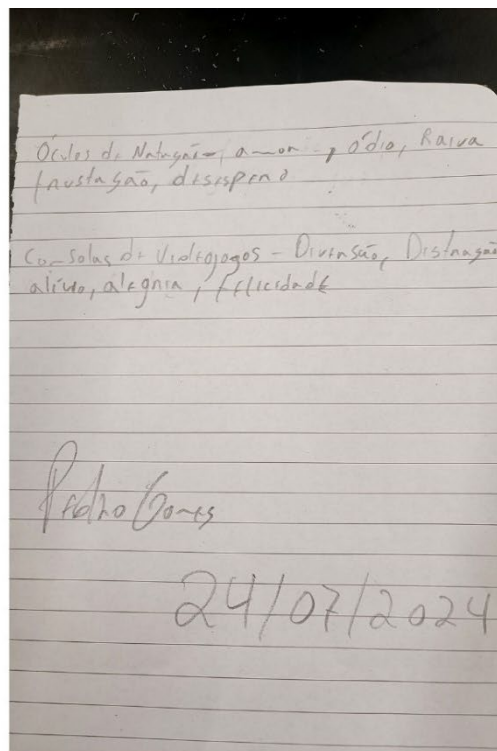 Óculos de Natação - amor, ódio, Raiva
frustasão, desespero
Consolas de Videojogos - Diversão, Distração
alívio, alegria, felicidade
Pedro Gomes
24/07/2024